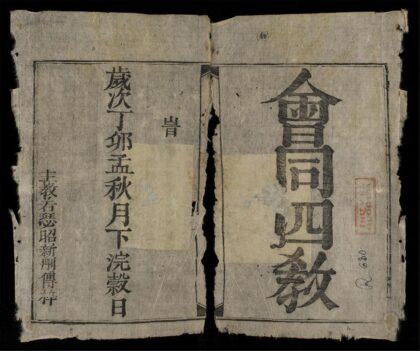 會同四教
旹
歲次丁卯孟秋月下浣穀日
主教若瑟昭新傳梓
680